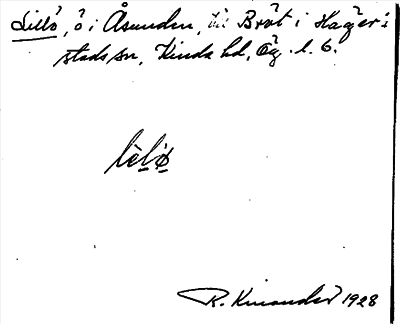 Lillö, ö i Åsunden, till Bröt i Häger-
stads sn, Kinda hd, Ög. l. 6.
lìlø
R. Kinander 1928